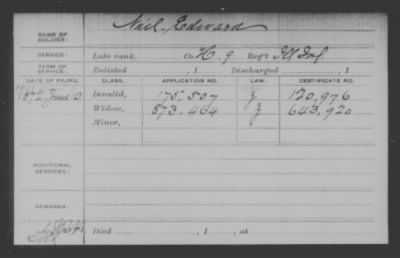 Neil, Edward
NAME OF SOLDIER:
SERVICE: Late rank, Co. H. 9 Reg't Ill Inf.
TERM OF SERVICE: Enlisted , 1 Discharged , 1
DATE OF FILING. CLASS. APPLICATION NO. LAW. CERTIFICATE NO.
1872 June 10 Invalid, 175,507 120,976
Widow, 873,464 643,920
Minor,
ADDITIONAL SERVICES:
REMARKS:
Died , 1 , at